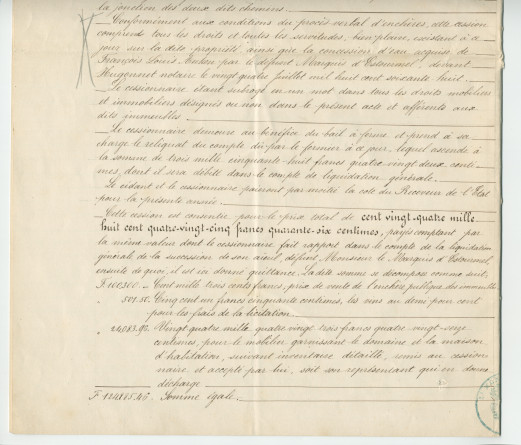 la jonction des deux dits chemins.
Conformément aux conditions du procès verbal d'enchères, cette cession
comprend tous les droits et toutes les servitudes, bien plaine, existant à ce
jour sur la dite propriété, ainsi que la concession d'eau acquise de
François Louis par le défunt Marquis d'Estourmel, devant
Hugonnet notaire le vingt quatre juillet mil huit cent soixante huit.
Le cessionnaire étant subrogé en un mot dans tous les droits mobiliers
et immobiliers désignés ou non dans le présent acte et afférents aux
dits immeubles.
Le cessionnaire demeure au bénéfice du bail à ferme et prend à sa
charge le reliquat du compte dû par le fermier à ce jour, lequel ascende à
la somme de trois mille cinquante huit francs quatre vingt deux centi-
mes, dont il sera débité dans le compte de liquidation générale.
Le cédant et le cessionnaire paieront par moitié la cote du Receveur de l'Etat
pour la présente année.
Cette cession est consentie pour le prix total de cent vingt-quatre mille
huit cent quatre-vingt-cinq francs quarante-six centimes, payés comptant par
la même valeur dont le cessionnaire fait rapport dans le compte de la liquidation
générale de la succession de son aïeul, défunt, Monsieur le Marquis d'Estourmel,
ensuite de quoi, il est ici donné quittance. La dite somme se décompose comme suit,
F. 100300.– Cent mille trois cents francs, prix de vente de l'enchère publique des immeubles
501.50. Cinq cent un francs cinquante centimes, les cinq au demi pour cent
pour les frais de la licitation
24083.96 Vingt quatre mille quatre vingt trois francs quatre vingt-seize
centimes, pour le mobilier garnissant le domaine et la maison
d'habitation, suivant inventaire détaillé, remis au cession-
naire et accepté par lui, soit son représentant qui en donne
décharge
F. 124885.46 Somme égale.